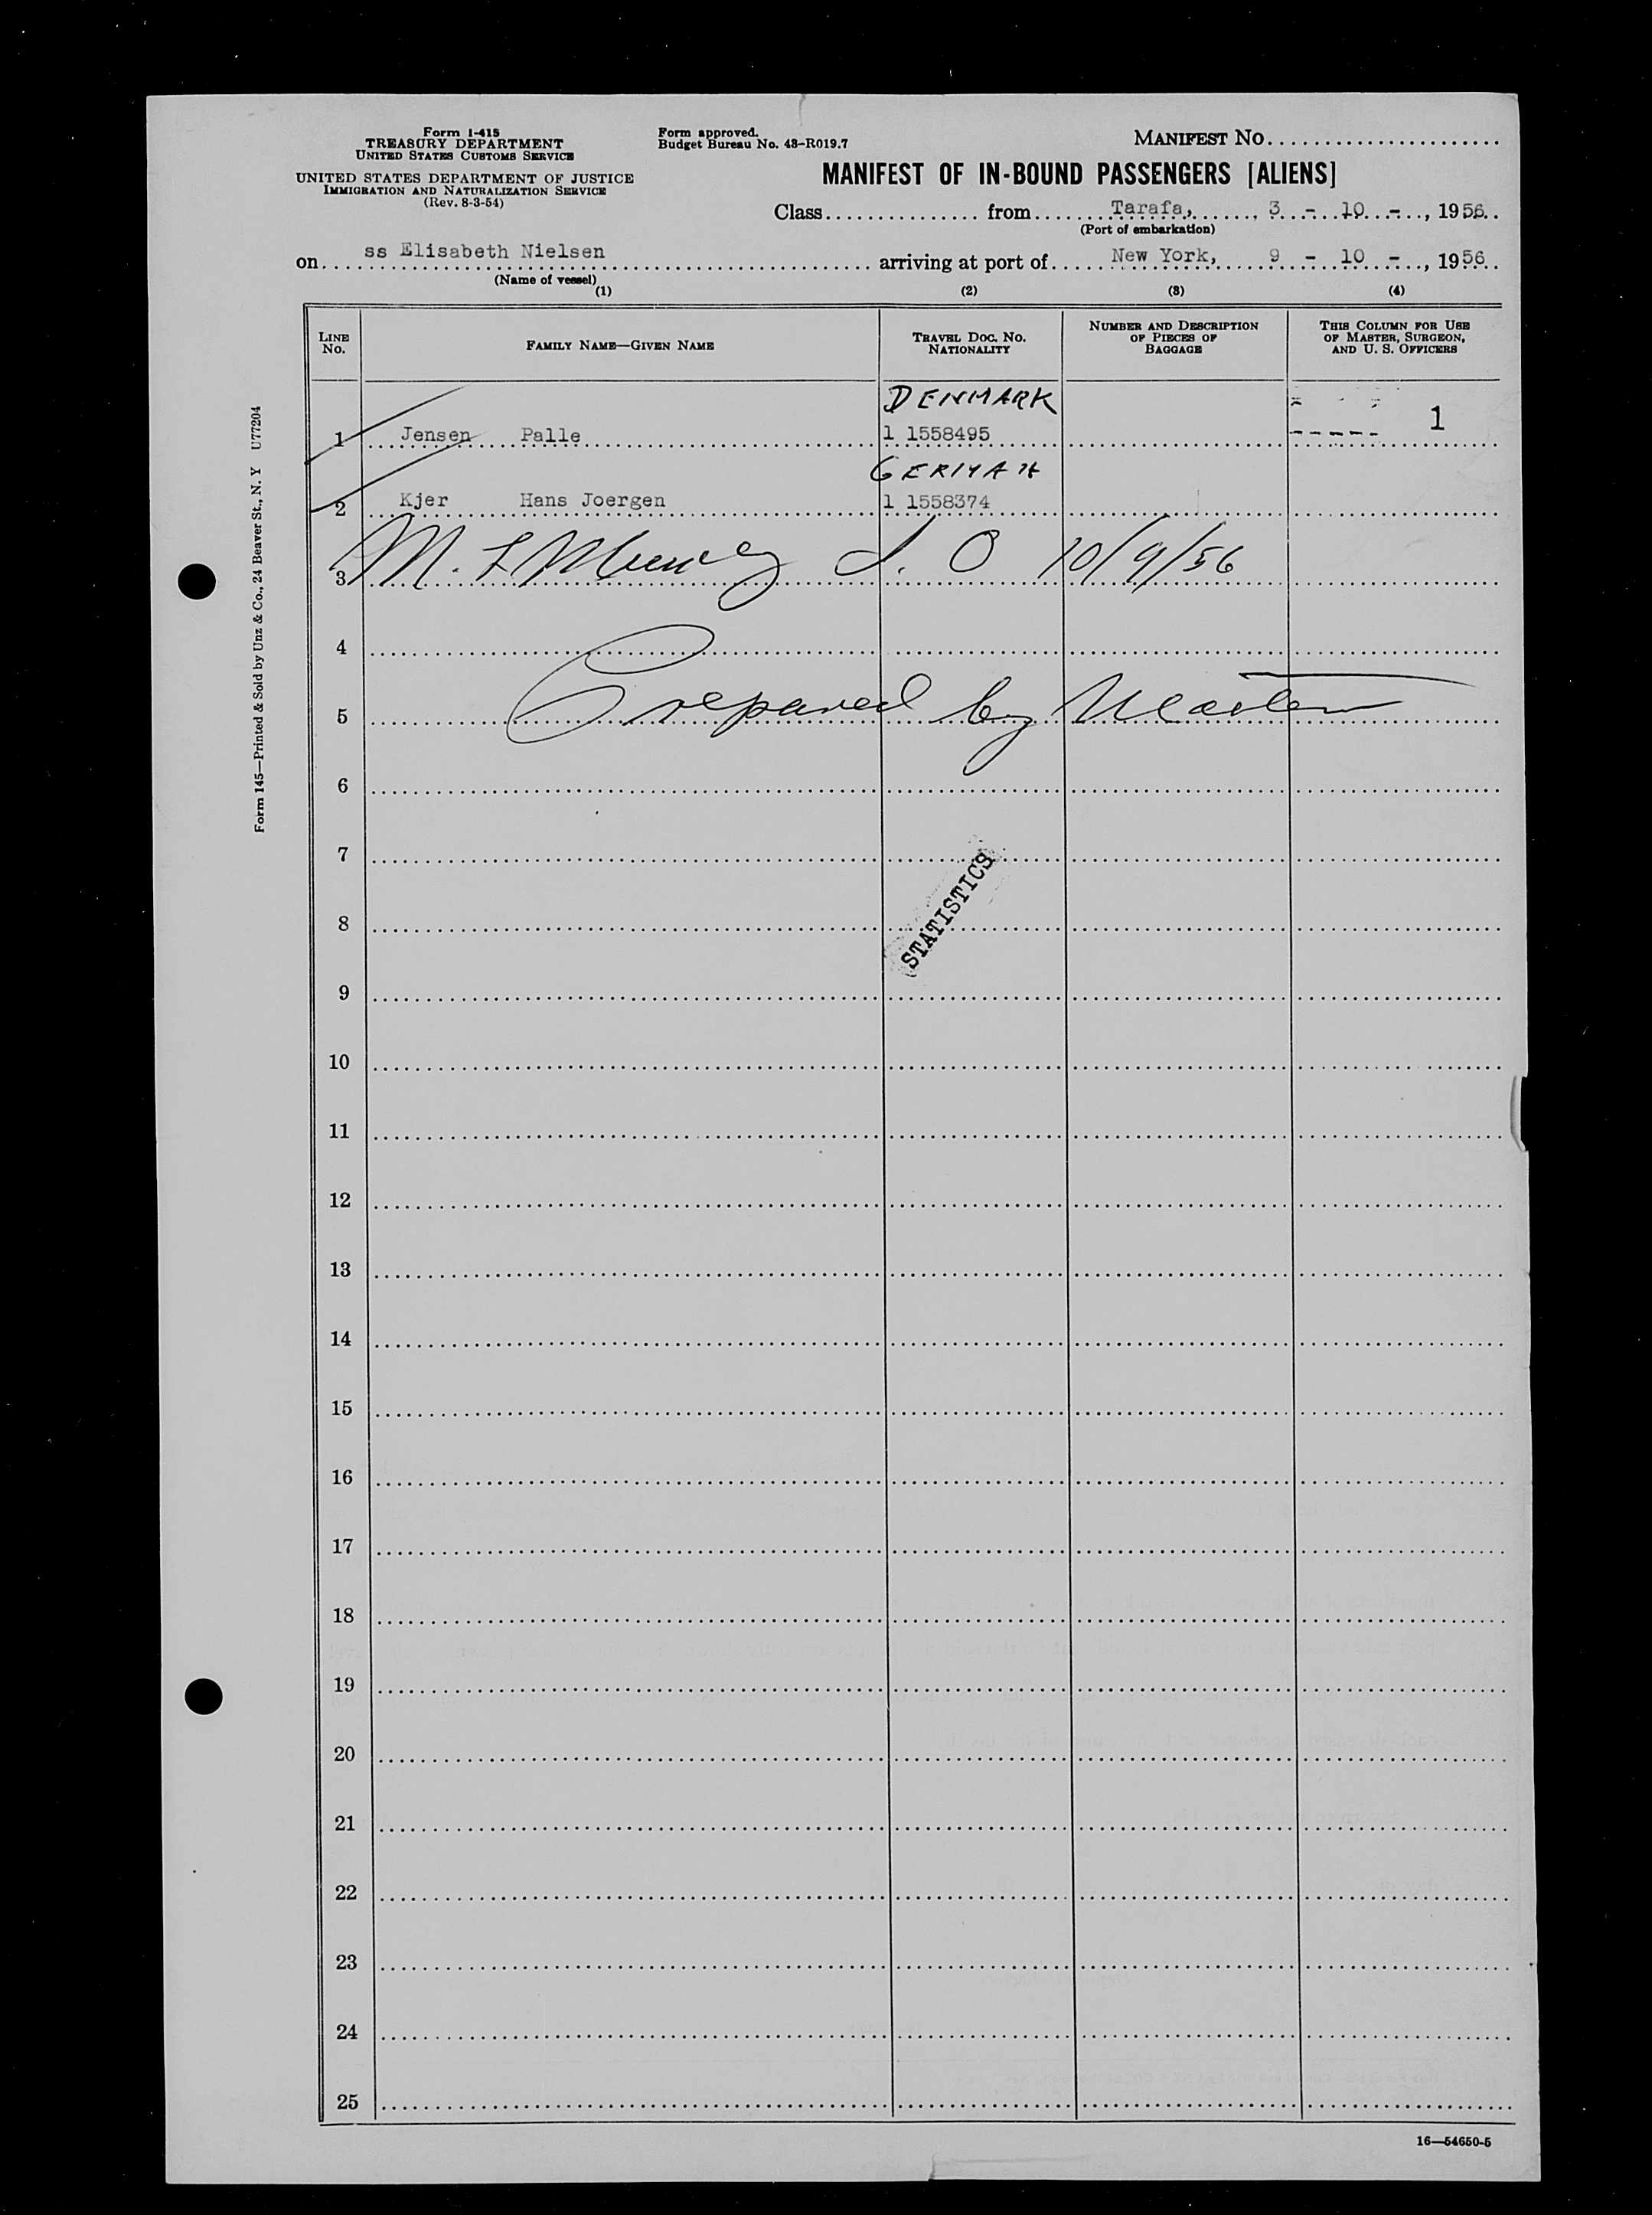 Form I-415
TREASURY DEPARTMENT
UNITED STATES CUSTOMS SERVICE
UNITED STATES DEPARTMENT OF JUSTICE
IMMIGRATION AND NATURALIZATION SERVICE
(Rev. 8-3-54)
Form approved.
Budget Bureau No. 43-R019.7
MANIFEST NO.
MANIFEST OF IN-BOUND PASSENGERS [ALIENS]
Class from Tarafa, 3 - 10 - , 1956
(Port of embarkation)
on ss Elisabeth Nielsen arriving at port of New York, 9 - 10 - , 1956
(Name of vessel)
(1) (2) (3) (4)
LINE NO.
FAMILY NAME—GIVEN NAME
TRAVEL DOC. NO. NATIONALITY
NUMBER AND DESCRIPTION OF PIECES OF BAGGAGE
THIS COLUMN FOR USE OF MASTER, SURGEON, AND U. S. OFFICERS
DENMARK
1 Jensen Palle 1 1558495 1
GERMAN
2 Kjer Hans Joergen 1 1558374
3 M. I. O 10/9/56
4
5 Prepared by Master
6
7
STATISTICS
8
9
10
11
12
13
14
15
16
17
18
19
20
21
22
23
24
25
16—54650-5
Form 145—Printed & Sold by Unz & Co., 24 Beaver St., N. Y U77204